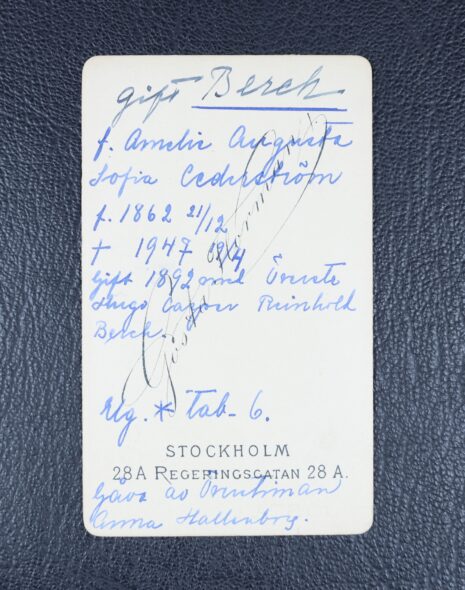 gift Berch
f. Amelie Augusta
Sofia Cederström
f. 1862 21/12
† 1947 /4
Gift 1892 med Överste
Hugo Casper Reinhold
Berch.
Gösta Florman
Elg. * Tab. 6.
STOCKHOLM
28 A REGERINGSGATAN 28 A.
Gåva av Överstinnan
Anna Hallenborg.